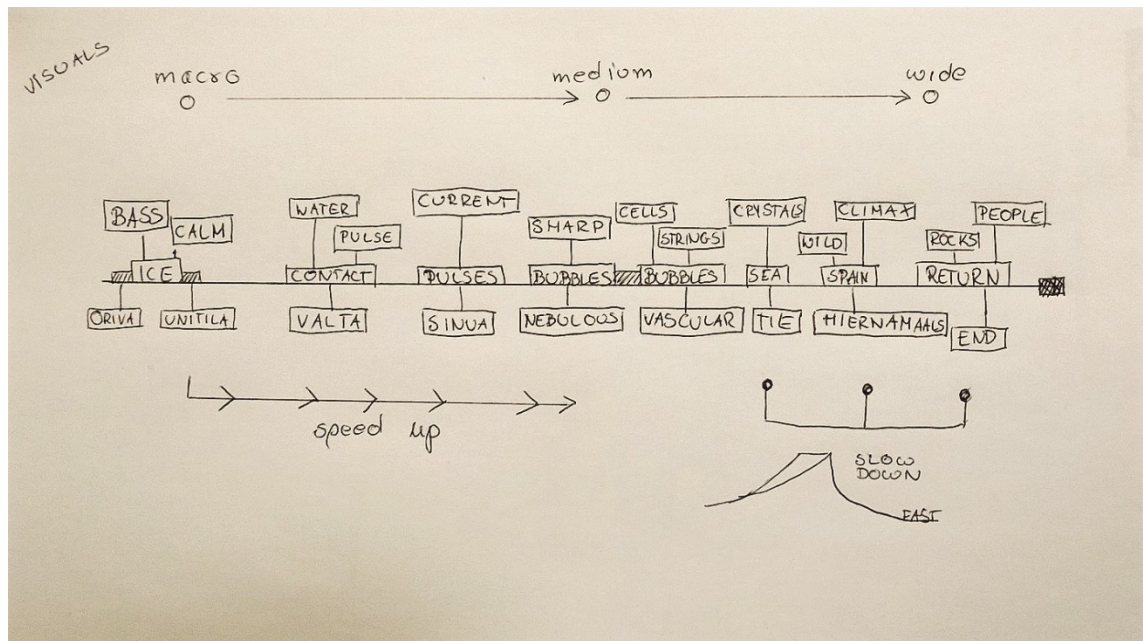 VISUALS
macro medium wide
BASS CALM WATER PULSE CURRENT SHARP CELLS STRINGS CRYSTALS WILD CLIMAX ROCKS PEOPLE
ICE CONTACT PULSES BUBBLES BUBBLES SEA SPAIN RETURN
ORIVA UNITILA VALTA SINUA NEBULOUS VASCULAR TIE HIERNAMAALS END
speed up
SLOW
DOWN
FAST